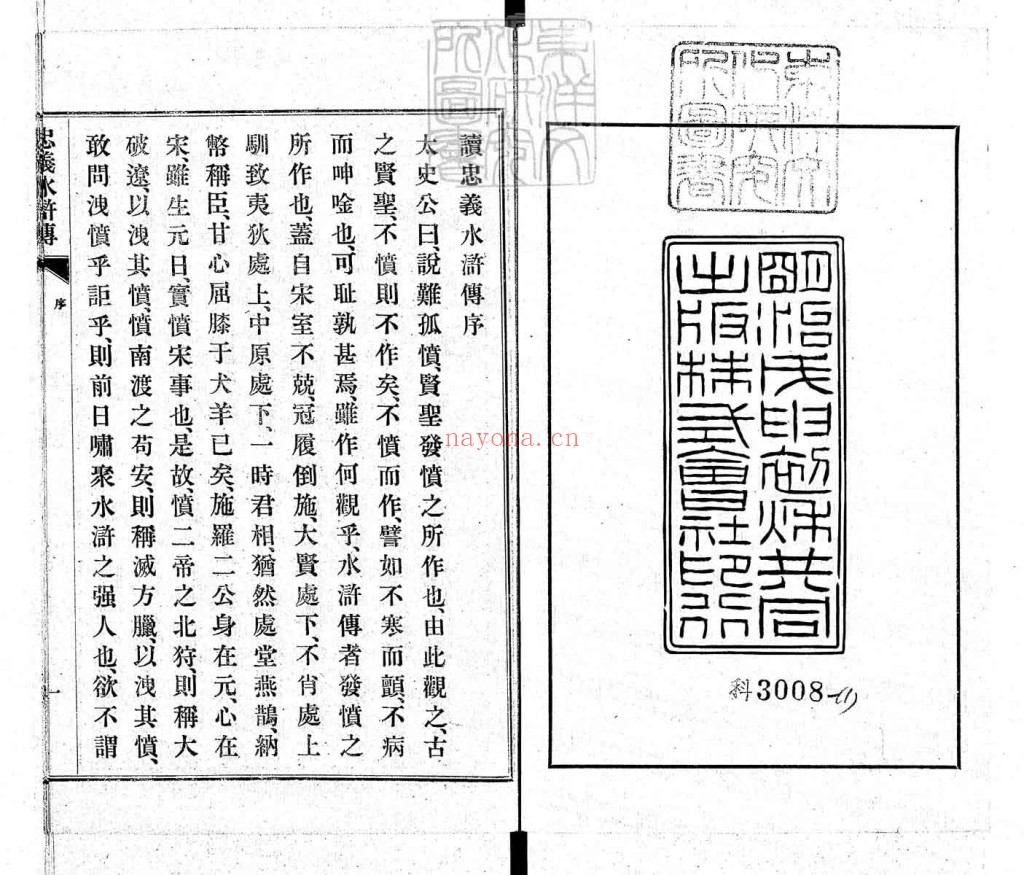 東洋文
化研究
所圖書
明治戊申初秋共同
出版株式會社印行
科3008-(1)
東洋文
化研究
所圖書
讀忠義水滸傳序
太史公曰、說難孤憤、賢聖發憤之所作也、由此觀之、古
之賢聖、不憤則不作矣、不憤而作、譬如不寒而顫、不病
而呻唫也、可耻孰甚焉、雖作何觀乎、水滸傳者發憤之
所作也、蓋自宋室不兢、冠履倒施、大賢處下、不肖處上
馴致夷狄處上、中原處下、一時君相、猶然處堂燕鵲、納
幣稱臣、甘心屈膝于犬羊已矣、施羅二公身在元、心在
宋、雖生元日、實憤宋事也、是故、憤二帝之北狩、則稱大
破遼、以洩其憤、憤南渡之苟安、則稱滅方臘、以洩其憤、
敢問洩憤乎詎乎、則前日嘯聚水滸之强人也、欲不謂
忠義水滸傳
序
一
nayona.cn